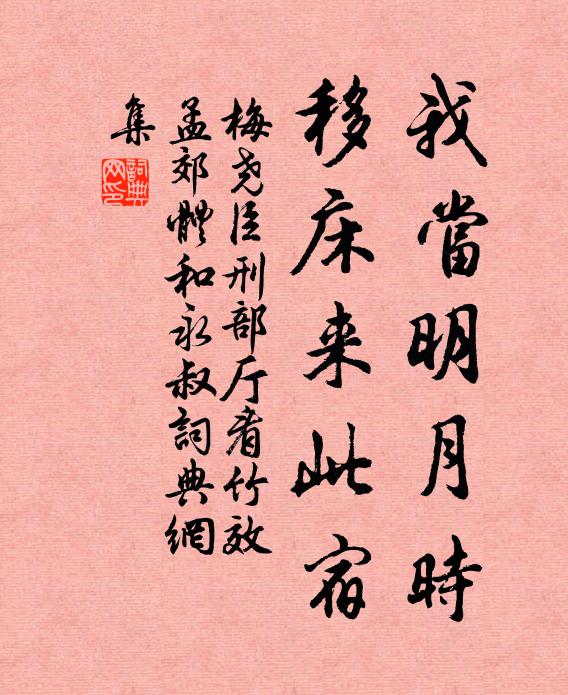 我當明月時
移床来此宿
梅尧臣刑部厅看竹效
孟郊體和永叔詞典網
集
詞典網印